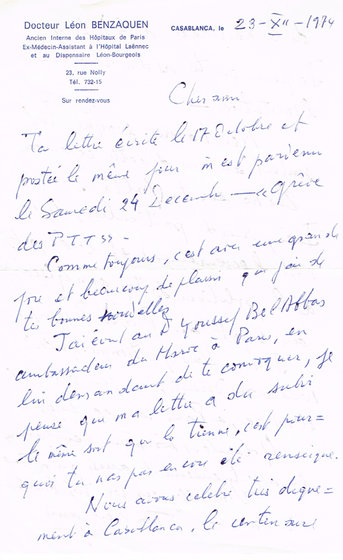 Docteur Léon BENZAQUEN
Ancien Interne des Hôpitaux de Paris
Ex-Médecin-Assistant à l'Hôpital Laënnec
et au Dispensaire Léon-Bourgeois
23, rue Nolly
Tél. 732-15
Sur rendez-vous
CASABLANCA, le 23-XII-1974
Cher ami
Ta lettre écrite le 17 Octobre et
postée le même jour m'est parvenu
le Samedi 24 Decembre — Grève
des PTT
Comme toujours, c'est avec une grande
joie et beaucoup de plaisir que j'ai de
tes bonnes nouvelles
J'ai écrit au Dr Youssef Bel Abbas
ambassadeur du Maroc à Paris, en
lui demandant de te convoquer, je
pense que ma lettre a du subir
le même sort que la tienne, c'est pour=
quoi tu n'as pas encore été renseigné.
Nous avons celebré très digne=
ment à Casablanca, le centenaire